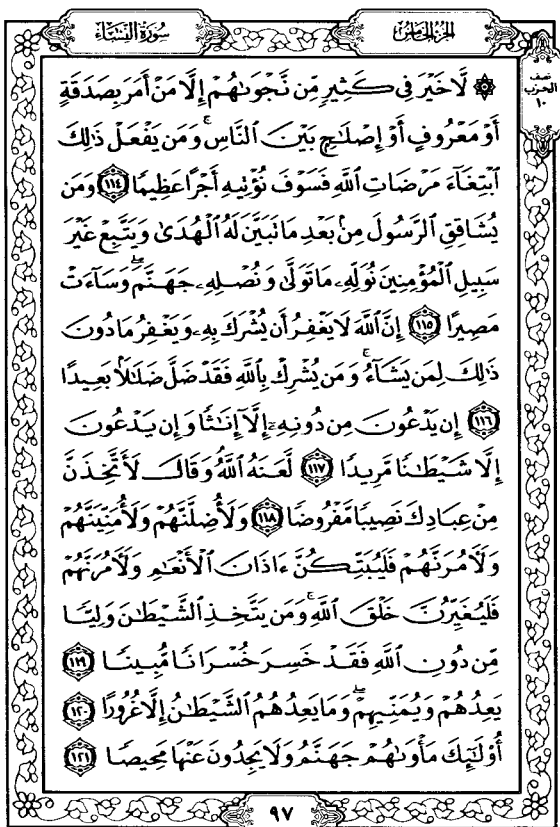 الجزء الخامس
سورة النساء
نصف
الحزب
١٠
۞ لَّا خَيْرَ فِي كَثِيرٍ مِّن نَّجْوَىٰهُمْ إِلَّا مَنْ أَمَرَ بِصَدَقَةٍ
أَوْ مَعْرُوفٍ أَوْ إِصْلَٰحٍۭ بَيْنَ ٱلنَّاسِۚ وَمَن يَفْعَلْ ذَٰلِكَ
ٱبْتِغَآءَ مَرْضَاتِ ٱللَّهِ فَسَوْفَ نُؤْتِيهِ أَجْرًا عَظِيمًا ١١٤ وَمَن
يُشَاقِقِ ٱلرَّسُولَ مِنۢ بَعْدِ مَا تَبَيَّنَ لَهُ ٱلْهُدَىٰ وَيَتَّبِعْ غَيْرَ
سَبِيلِ ٱلْمُؤْمِنِينَ نُوَلِّهِۦ مَا تَوَلَّىٰ وَنُصْلِهِۦ جَهَنَّمَۖ وَسَآءَتْ
مَصِيرًا ١١٥ إِنَّ ٱللَّهَ لَا يَغْفِرُ أَن يُشْرَكَ بِهِۦ وَيَغْفِرُ مَا دُونَ
ذَٰلِكَ لِمَن يَشَآءُۚ وَمَن يُشْرِكْ بِٱللَّهِ فَقَدْ ضَلَّ ضَلَٰلًۢا بَعِيدًا
١١٦ إِن يَدْعُونَ مِن دُونِهِۦٓ إِلَّآ إِنَٰثًا وَإِن يَدْعُونَ
إِلَّا شَيْطَٰنًا مَّرِيدًا ١١٧ لَّعَنَهُ ٱللَّهُۘ وَقَالَ لَأَتَّخِذَنَّ
مِنْ عِبَادِكَ نَصِيبًا مَّفْرُوضًا ١١٨ وَلَأُضِلَّنَّهُمْ وَلَأُمَنِّيَنَّهُمْ
وَلَءَامُرَنَّهُمْ فَلَيُبَتِّكُنَّ ءَاذَانَ ٱلْأَنْعَٰمِ وَلَءَامُرَنَّهُمْ
فَلَيُغَيِّرُنَّ خَلْقَ ٱللَّهِۚ وَمَن يَتَّخِذِ ٱلشَّيْطَٰنَ وَلِيًّا
مِّن دُونِ ٱللَّهِ فَقَدْ خَسِرَ خُسْرَانًا مُّبِينًا ١١٩
يَعِدُهُمْ وَيُمَنِّيهِمْۖ وَمَا يَعِدُهُمُ ٱلشَّيْطَٰنُ إِلَّا غُرُورًا ١٢٠
أُو۟لَٰٓئِكَ مَأْوَىٰهُمْ جَهَنَّمُ وَلَا يَجِدُونَ عَنْهَا مَحِيصًا ١٢١
٩٧